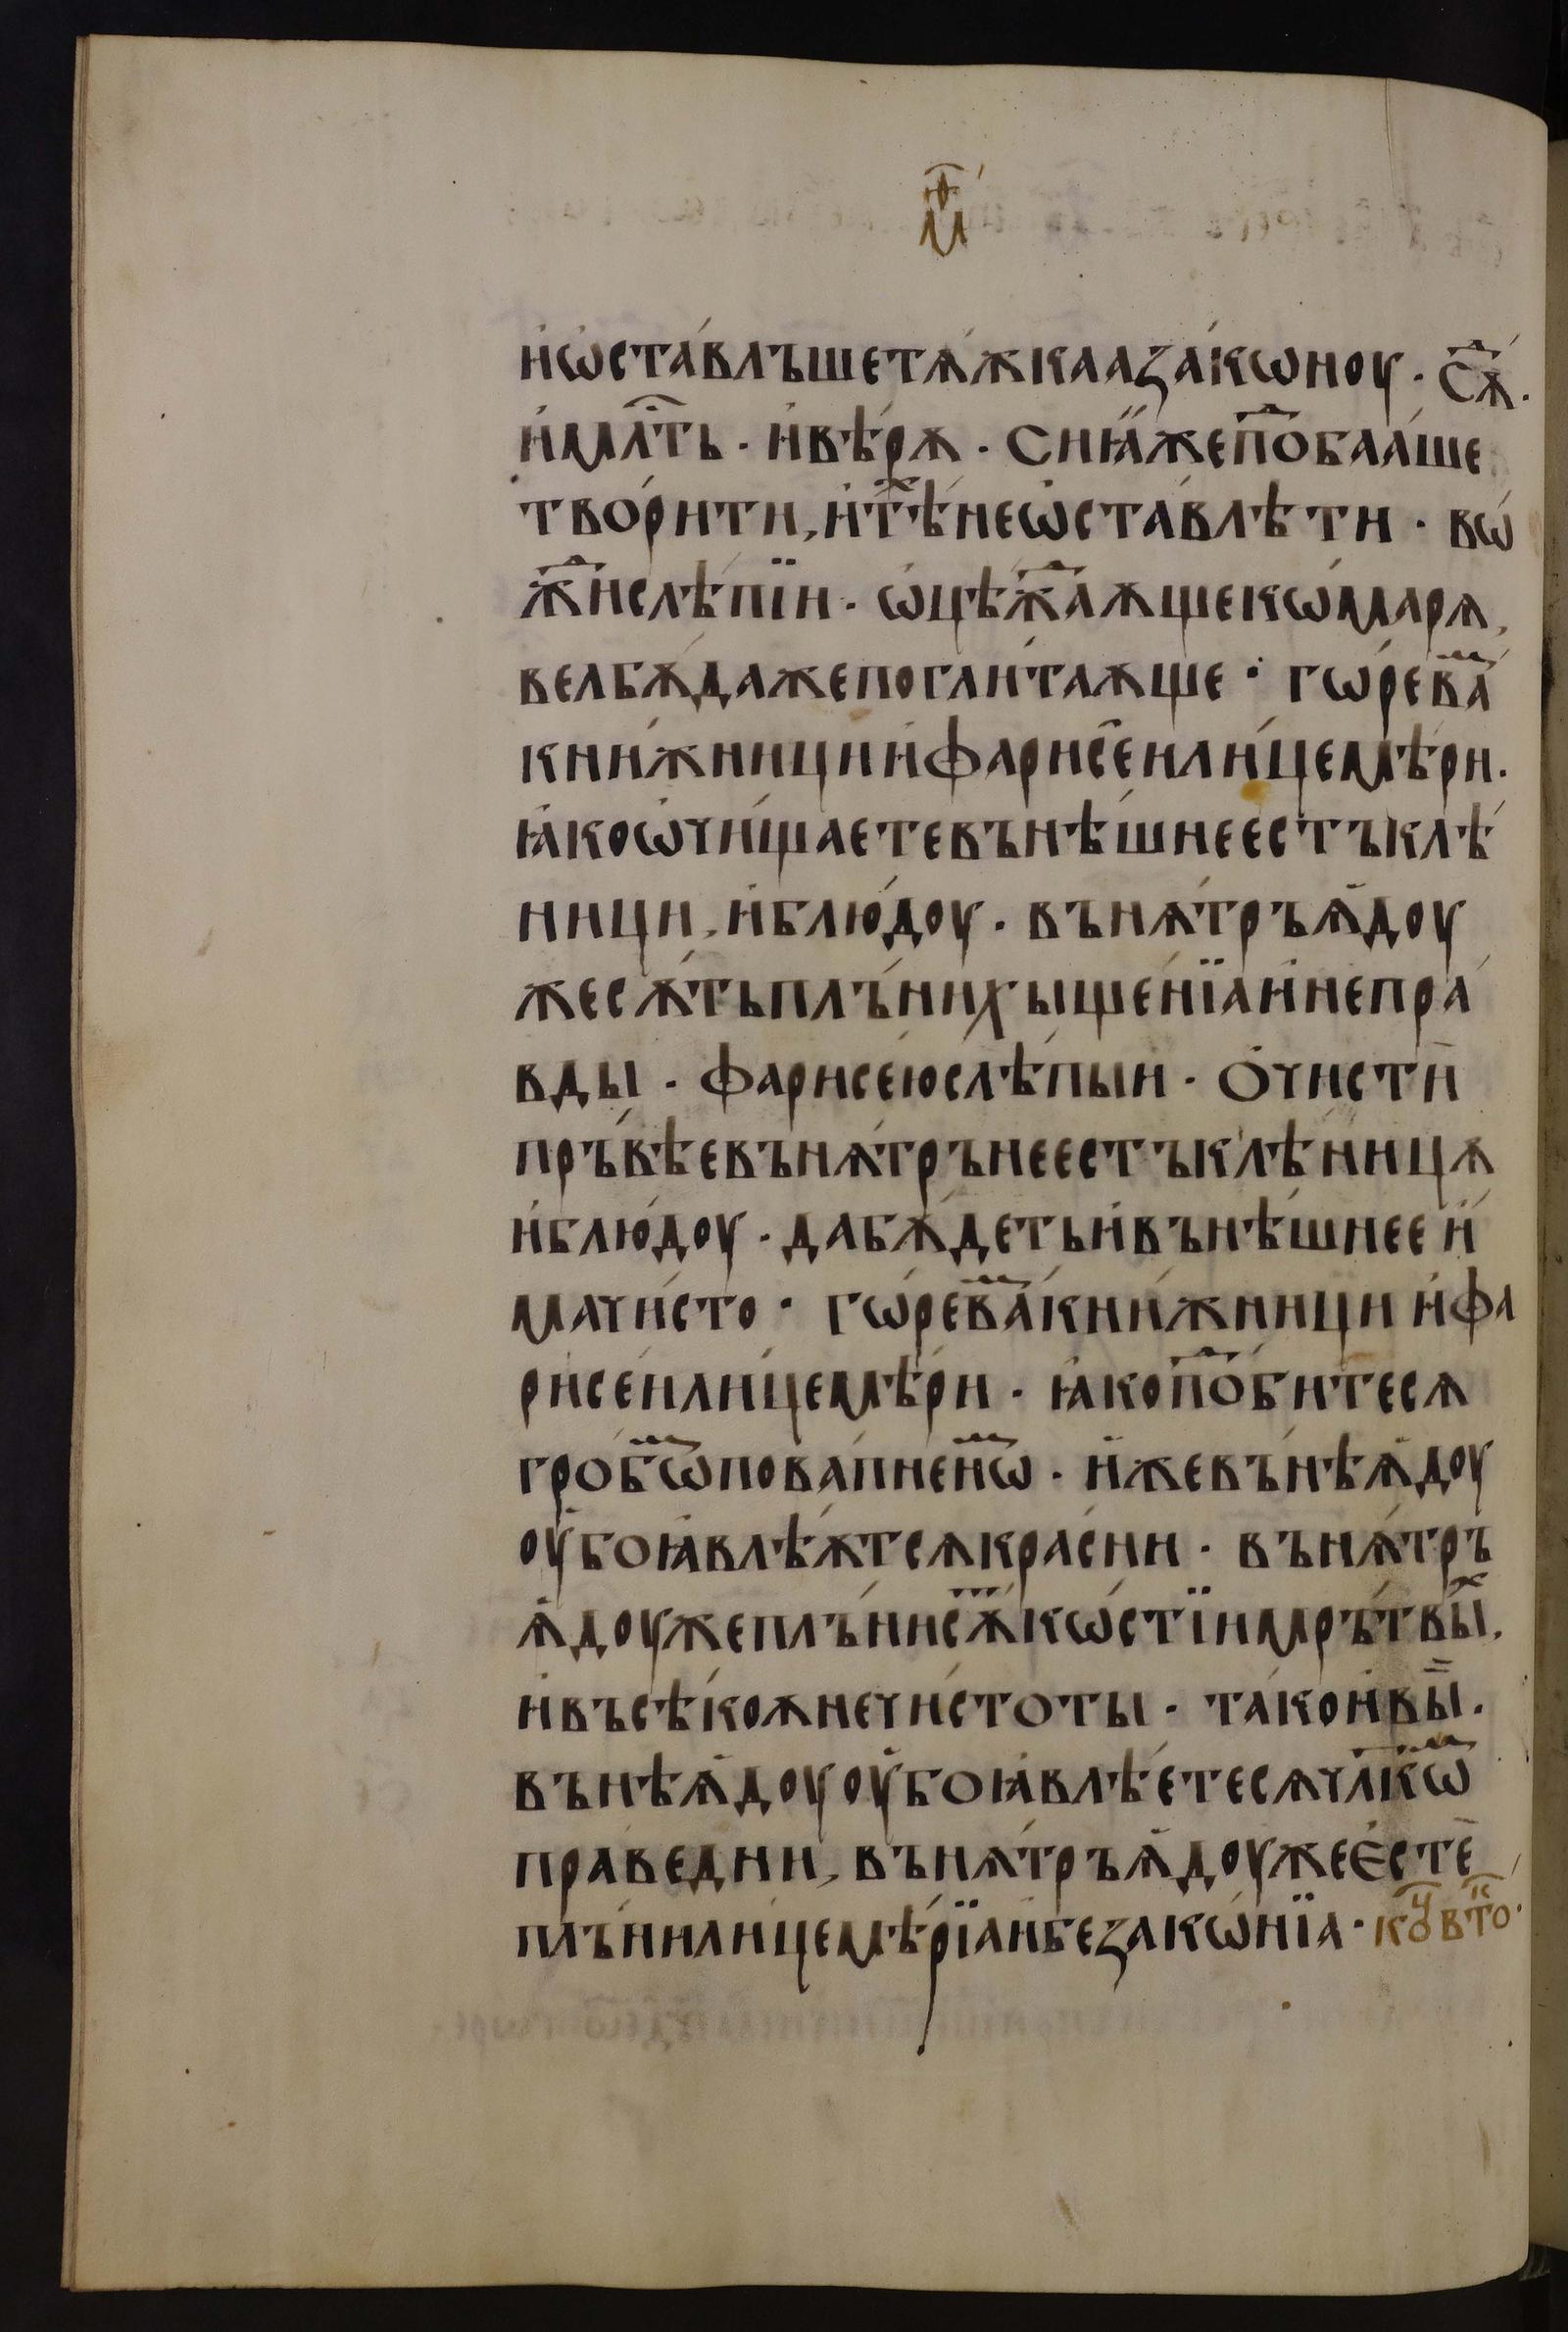 и҆ѡ҆ста́влъшетѧ́жкаазако́нѡноу · сѫⷣ ·
и҆мл҃ть · и҆вѣ́рѫ · сиꙗ҆́жепоⷣбаа́ше
твори́ти, и҆тѣⷯ҆неѡ҆ста́влѣти · вѡ́
жⷣислѣ́пїи · ѡ҆цѣжⷣа́ѫщекѡма́рѧ,
велбѫ́дажепоглита́ѫще · гѡ́реваⷨ
кни́жниции҆фарисе́илицемѣ́ри ·
ꙗ҆́коѡ҆чи́щаетевънѣ́шнеестъклѣ́
ници, и҆блю́доу · вънѫ́тръѫ҆доу
жесѫ́тьплъ́нихыще́нїаи҆непра́
вды · фарисе́юслѣ́пыи · о҆чисти
пръ́вѣевънѫ́трънеестъклѣ́ницѫ
и҆блю́доу · дабѫ́детьи҆вънѣ́шнееи҆
мачи́сто · гѡ́реваⷨкни́жници и҆фа
рисе́илицемѣ́ри · ꙗ҆́копоⷣбитесѧ
гробѡⷨпова́пненѡⷨ · и҆́жевънѣѫ҆доу
оу҆боꙗ҆влѣ́ѫтсѧкра́сни · вънѫ́тръ
ѫ҆доужеплъ́нисѫⷮкѡ́стїимръ́твыⷯ,
и҆въсѣ́коѫнечи́стоты · та́кои҆вы̀ ·
вънѣѫ҆доуоу҆боꙗ҆влѣ́етесѧчл҃кѡⷨ
пра́ведни, вънѫ́тръѫ҆доужеєсте
плъ́нилицемѣ́рїаи҆безакѡ́нїа · коⷰ҇втоⷦ ·